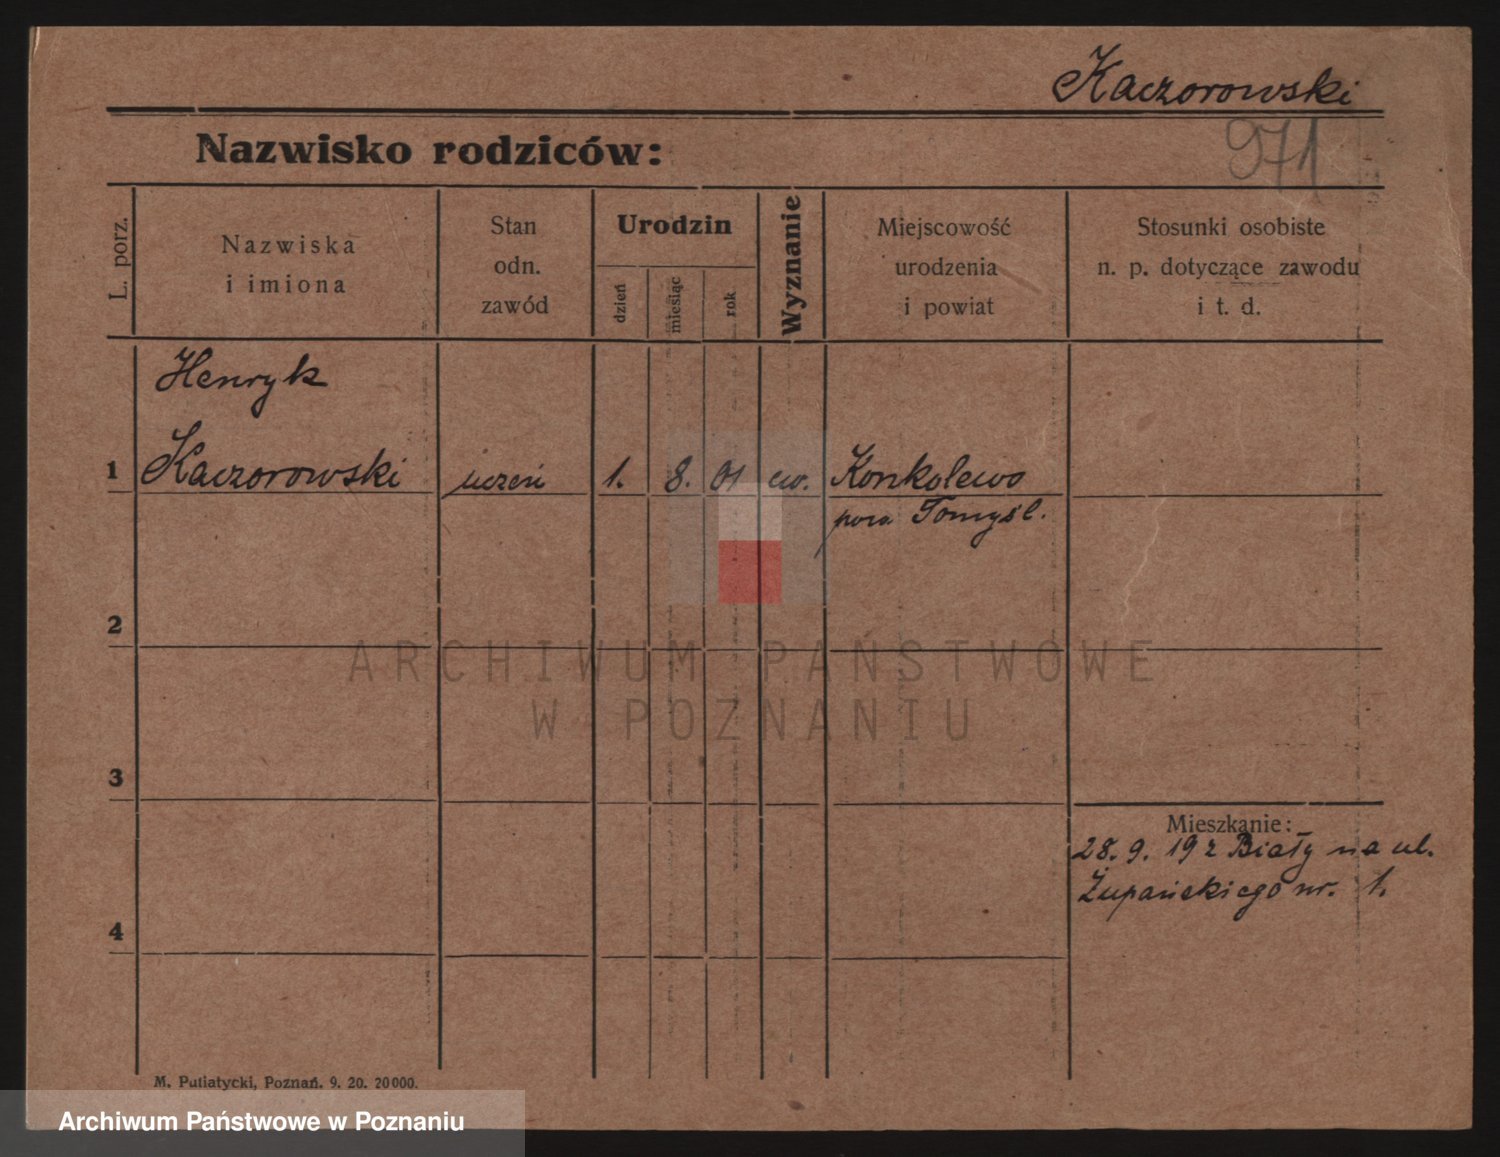 Kaczorowski
971
Nazwisko rodziców:
L. porz.
Nazwiska
i imiona
Stan
odn.
zawód
Urodzin
dzień
miesiąc
rok
Wyznanie
Miejscowość
urodzenia
i powiat
Stosunki osobiste
n. p. dotyczące zawodu
i t. d.
Henryk
1 Kaczorowski uczeń 1. 8. 01 ew. Konkolewo
Tomyśl.
2
ARCHIWUM PAŃSTWOWE
W POZNANIU
3
Mieszkanie:
28. 9. 19 z Biały na ul.
Żupańskiego nr. 1.
4
M. Putiatycki, Poznań. 9. 20. 20000.
Archiwum Państwowe w Poznaniu